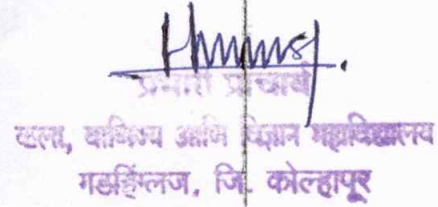 प्रभारी प्राचार्य
कला, वाणिज्य आणि विज्ञान महाविद्यालय
गडहिंग्लज, जि. कोल्हापूर